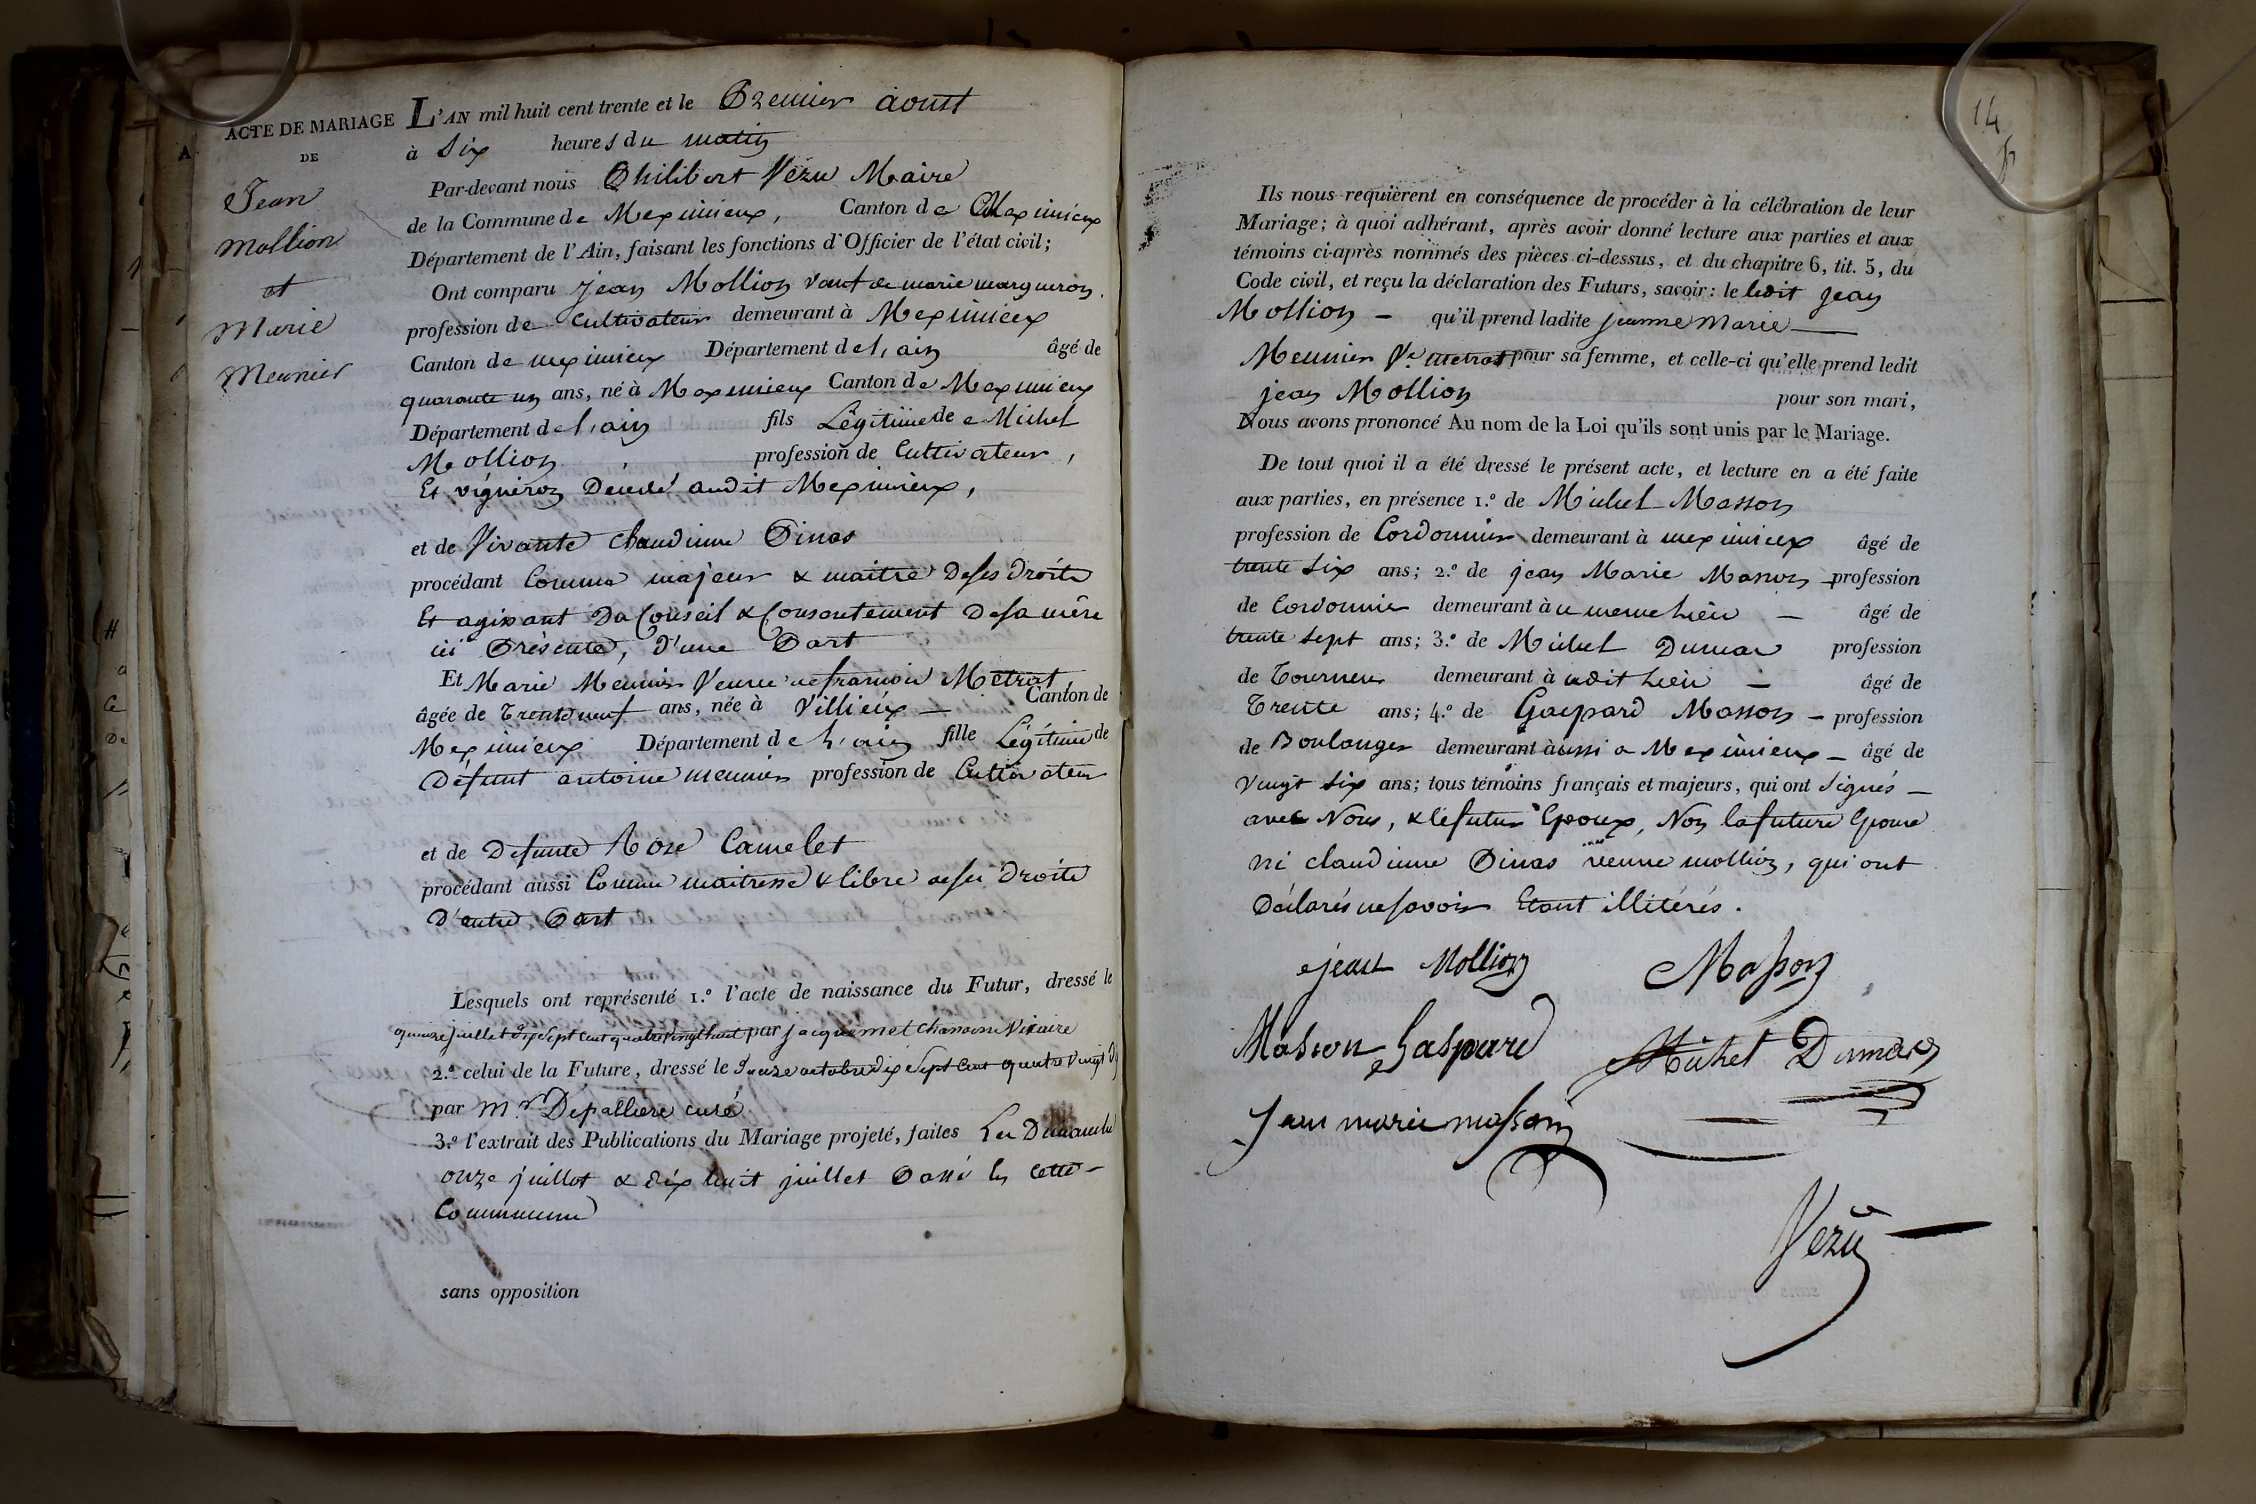 ACTE DE MARIAGE
DE
Jean
Mollion
et
Marie
Meunier
L'AN mil huit cent trente et le Premier aoust
à Six heures du matin
Par-devant nous Philibert Vézu Maire
de la Commune de Meximieux, Canton de Meximieux
Département de l'Ain, faisant les fonctions d'Officier de l'état civil;
Ont comparu jean Mollion veuf de marie marguiron
profession de Cultivateur demeurant à Meximieux
Canton de meximieux Département de l'ain âgé de
quarante un ans, né à Meximieux Canton de Meximieux
Département de l'ain fils Légitime de Michel
Mollion profession de Cultivateur,
Et vigneron Décédé audit Meximieux,
et de Vivante Claudinne Pinas
procédant Comme majeur & maitre de ses droits
Et agissant Du Conseil & Consentement De sa mère
ici Présente, d'une Part
Et Marie Meunier Veuve de françois Métrat
âgée de Trente neuf ans, née à Villieux Canton de
Meximieux Département de l'ain fille Légitime de
Défunt antoine meunier profession de Cultivateur
et de Defunte Rose Camelet
procédant aussi Comme maitresse & libre de ses Droits
D'autre Part
Lesquels ont représenté 1.º l'acte de naissance du Futur, dressé le
quinze juillet dix Sept cent quatre vingt huit par jacquemet chanoine Vicaire
2.º celui de la Future, dressé le Douze octobre dix Sept Cent quatre Vingt dix
par M.r Depalliere curé
3.º l'extrait des Publications du Mariage projeté, faites Les Dimanche
onze juillet & dix huit juillet Passé en cette
Commmune
sans opposition
14
Ils nous requièrent en conséquence de procéder à la célébration de leur
Mariage; à quoi adhérant, après avoir donné lecture aux parties et aux
témoins ci-après nommés des pièces ci-dessus, et du chapitre 6, tit. 5, du
Code civil, et reçu la déclaration des Futurs, savoir: le ledit jean
Mollion qu'il prend ladite jeanne Marie
Meunier Ve. metrat pour sa femme, et celle-ci qu'elle prend ledit
jean Mollion pour son mari,
Nous avons prononcé Au nom de la Loi qu'ils sont unis par le Mariage.
De tout quoi il a été dressé le présent acte, et lecture en a été faite
aux parties, en présence 1.º de Michel Masson
profession de Cordonnier demeurant à meximieux âgé de
trente Six ans; 2.º de jean Marie Masson profession
de Cordonnier demeurant à u meme Lieu âgé de
trente Sept ans; 3.º de Michel Dumas profession
de Tourneur demeurant à udit Lieu âgé de
Trente ans; 4.º de Gaspard Masson profession
de Boulanger demeurant àussi a Meximieux âgé de
Vingt Six ans; tous témoins français et majeurs, qui ont Signés
avec Nous, & le futur Epoux, Non la future Epouse
ni claudinne Pinas veuve mollion, qui ont
Déclarés ne savoir Etant illitérés.
jean Mollion Masson
Masson Gaspard Michel Dumas
Jean marie masson
Vezu